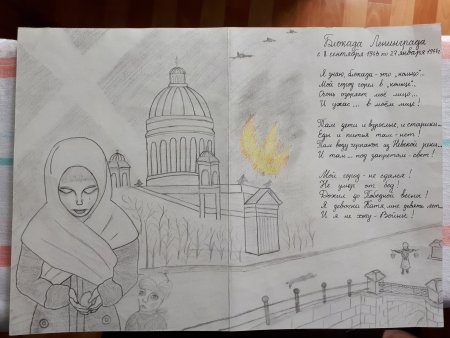 Блокада Ленинграда
с 8 сентября 1941 по 27 января 1944г.
Я знаю, блокада - это "кольцо"..
Мой город горел в "кольце"..
Огонь озаряет моё лицо...
И ужас... в моём лице!
Там дети и взрослые, и старики..
Еды и питья там - нет!
Там воду черпают из Невской реки..
И там... под запретом - свет!
Мой город - не сдался!
Не умер от бед!
Дожил до Победной весны!
Я девочка Катя, мне девять лет..
И я не хочу - Войны!